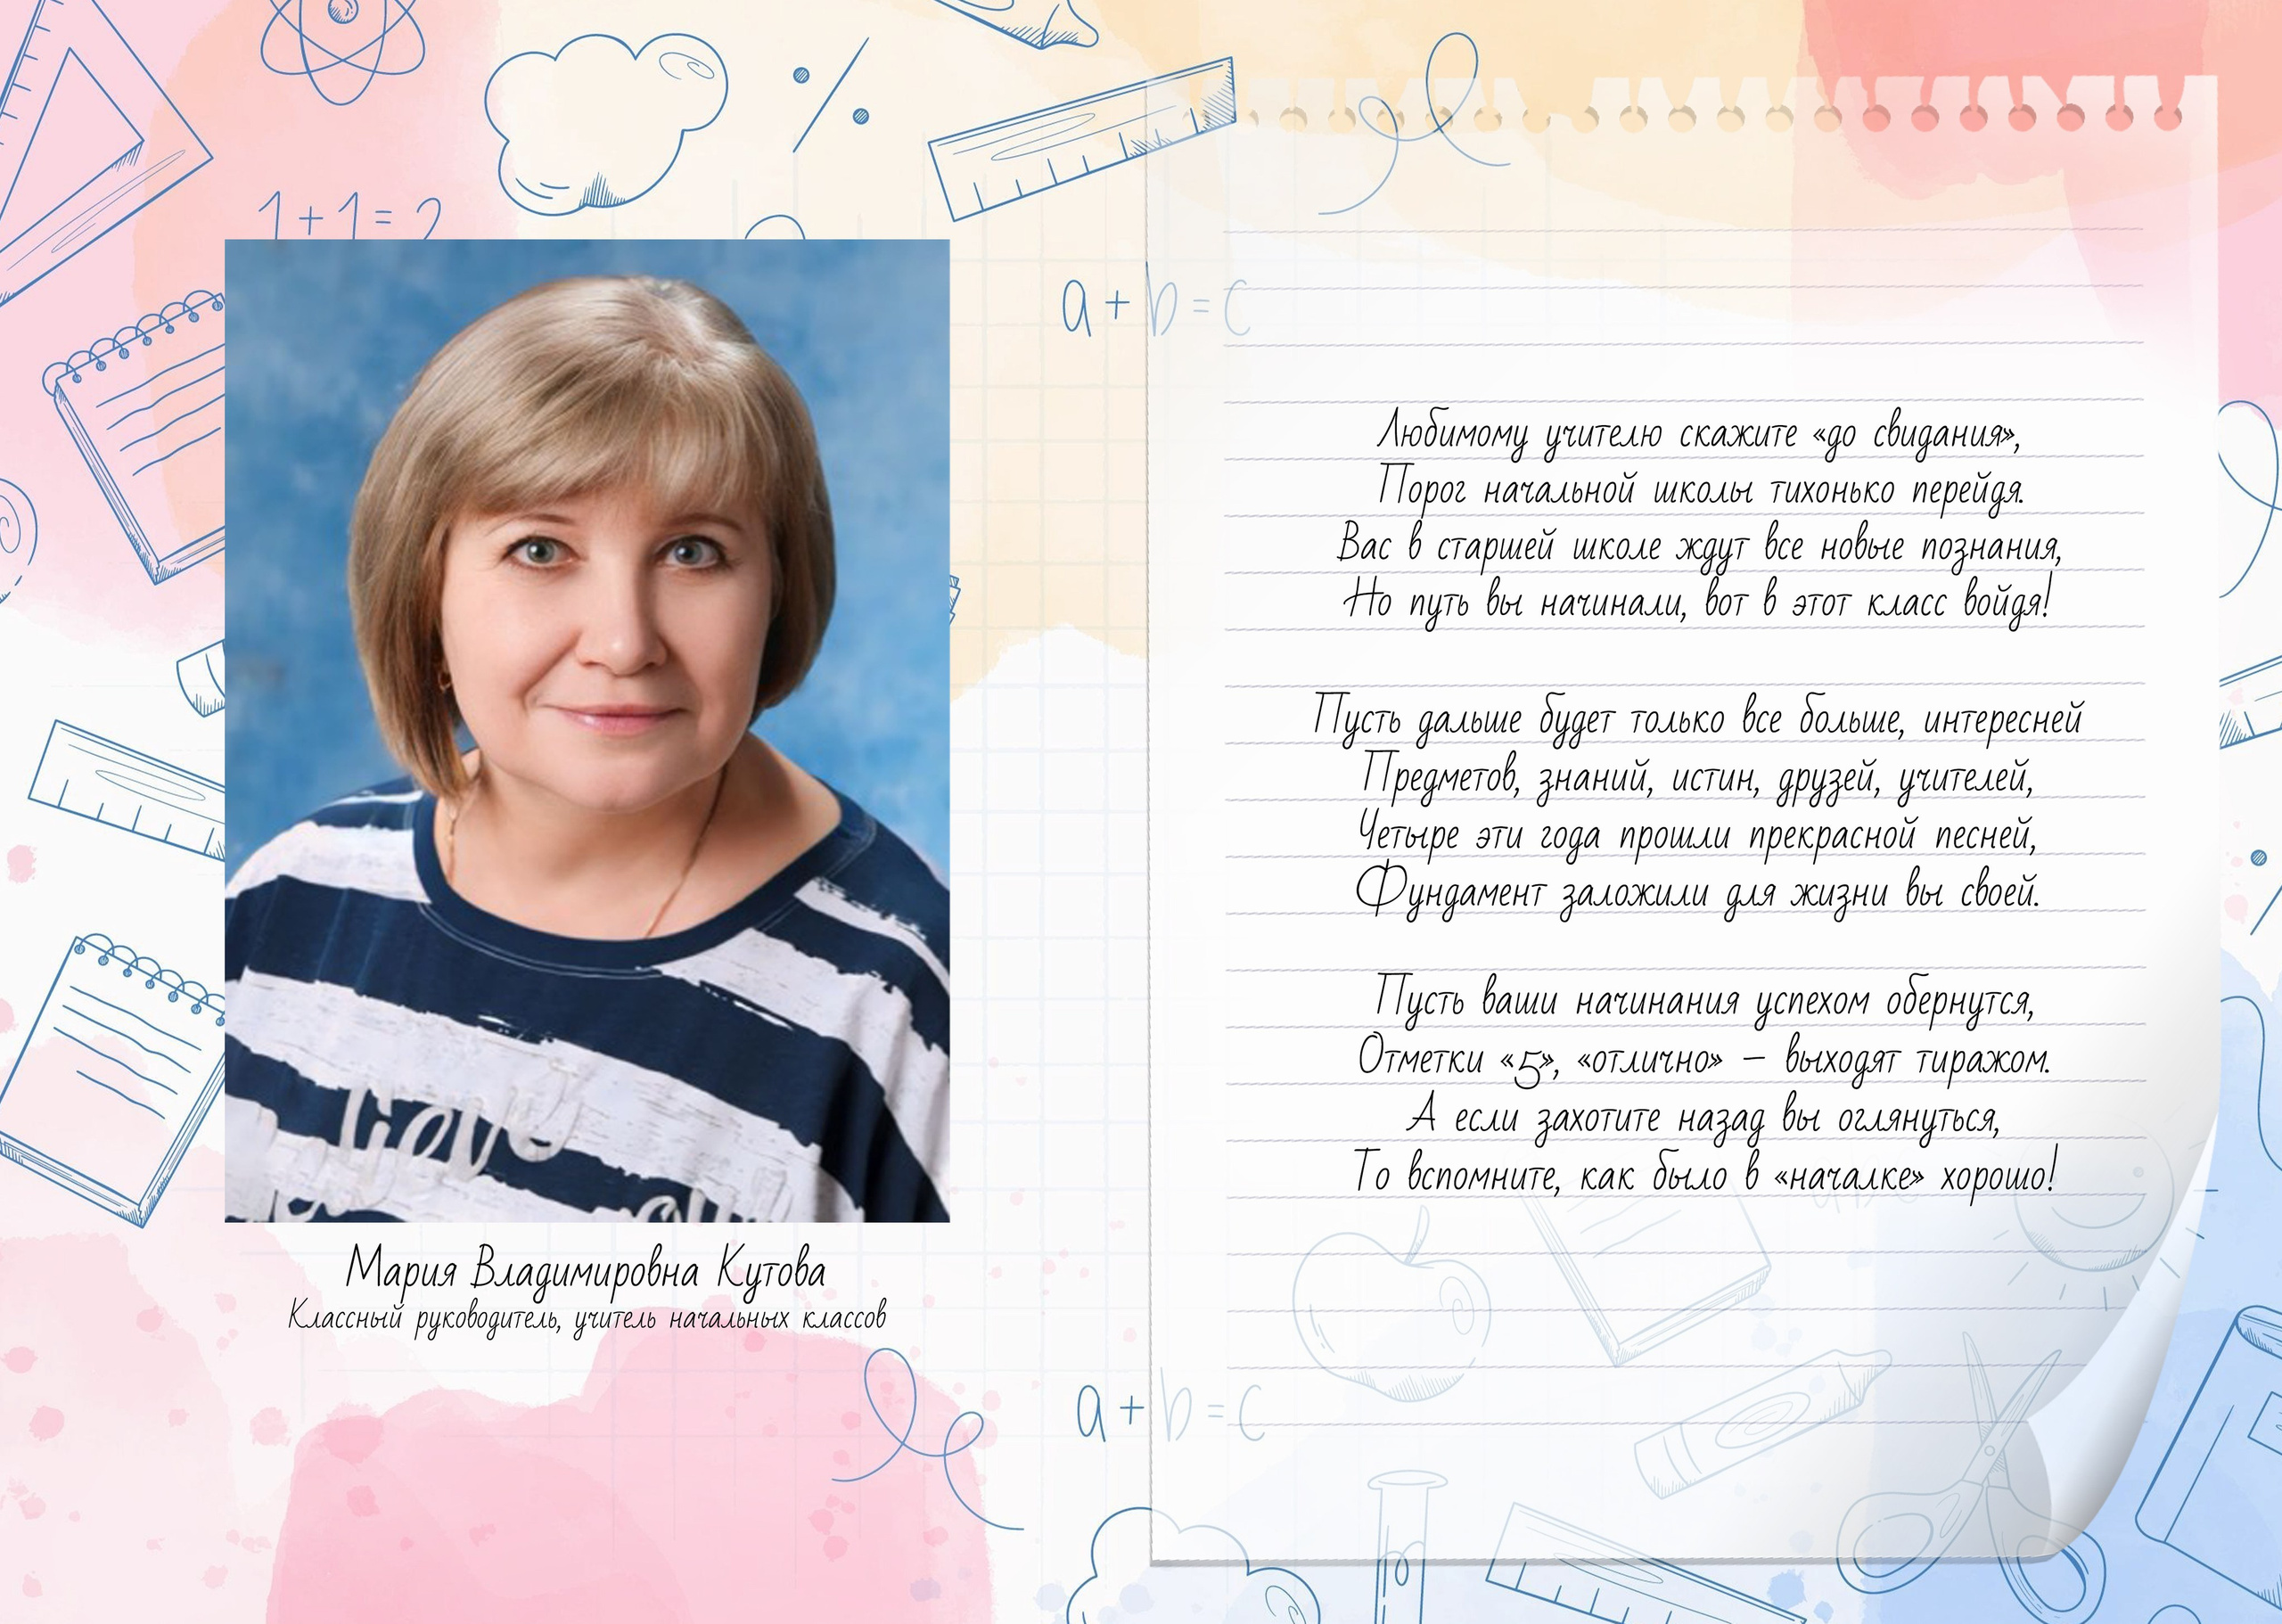 1+1=2
a+b=c
Любимому учителю скажите «до свидания»,
Порог начальной школы тихонько перейдя.
Вас в старшей школе ждут все новые познания,
Но путь вы начинали, вот в этот класс войдя!
Пусть дальше будет только все больше, интересней
Предметов, знаний, истин, друзей, учителей,
Четыре эти года прошли прекрасной песней,
Фундамент заложили для жизни вы своей.
Пусть ваши начинания успехом обернутся,
Отметки «5», «отлично» – выходят тиражом.
А если захотите назад вы оглянуться,
То вспомните, как было в «началке» хорошо!
Мария Владимировна Кутова
Классный руководитель, учитель начальных классов
a+b=c